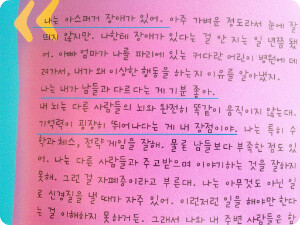 나는 아스퍼거 장애가 있어. 아주 가벼운 정도라서 눈에 잘
띄지 않지만. 나한테 장애가 있다는 걸 안 지는 일 년쯤 됐
어. 아빠 엄마가 나를 파리에 있는 커다란 어린이 병원에 데
려가서, 내가 왜 이상한 행동을 하는지 이유를 알아냈지.
나는 내가 남들과 다르다는 게 기분 좋아.
내 뇌는 다른 사람들의 뇌와 완전히 똑같이 움직이지 않는대.
기억력이 굉장히 뛰어나다는 게 내 장점이야. 나는 특히 수
학과 체스, 전략 게임을 잘해. 물론 남들보다 부족한 점도 있
어. 나는 다른 사람들과 주고받으며 이야기하는 것을 잘하지
못해. 그런 걸 자폐증이라고 부른대. 나는 아무것도 아닌 일
로 신경질을 낼 때가 자주 있어. 이런저런 일을 해야만 한다
는 걸 이해하지 못하거든. 그래서 나와 내 주변 사람들은 함